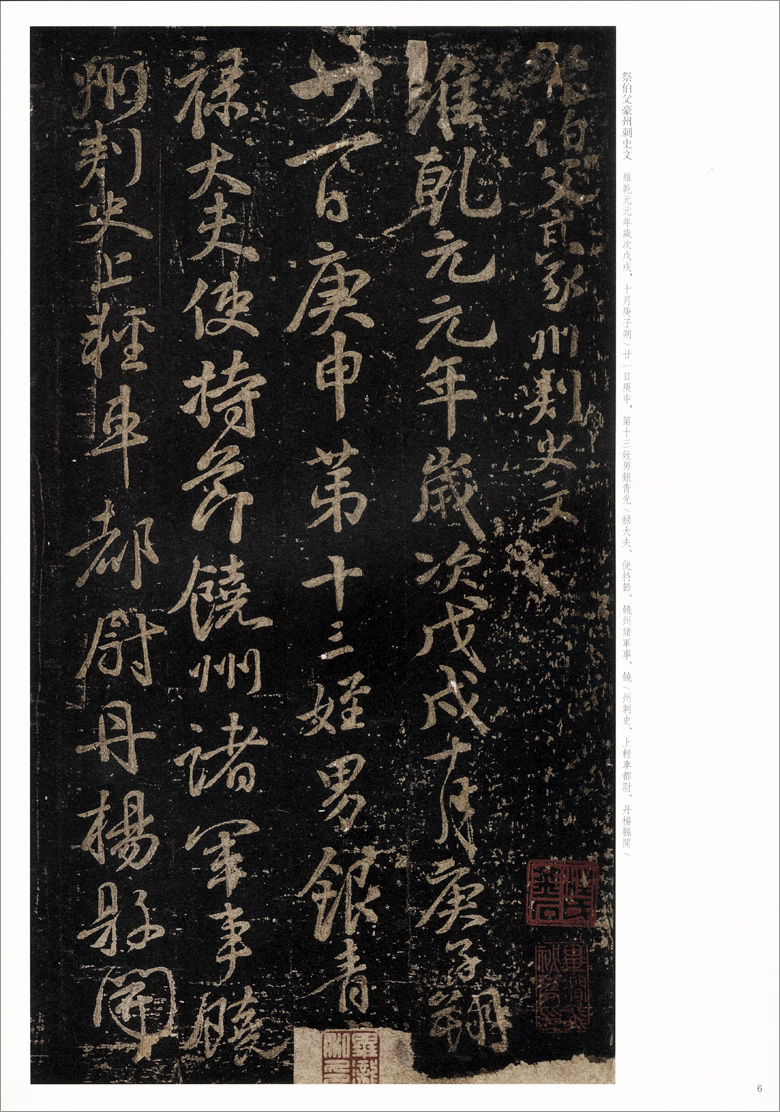 祭伯父豪州刾史文
維乾元元年歲次戊戌十月庚子朔
廿一日庚申第十三姪男銀青
禄大夫使持節饒州諸軍事饒
州刾史上輕車都尉丹楊縣開
祭伯父豪州刺史文 維乾元元年歲次戊戌，十月庚子朔/廿一日庚申，第十三姪男銀青光/禄大夫、使持節、饒州諸軍事、饒/州刺史、上輕車都尉、丹楊縣開/
6